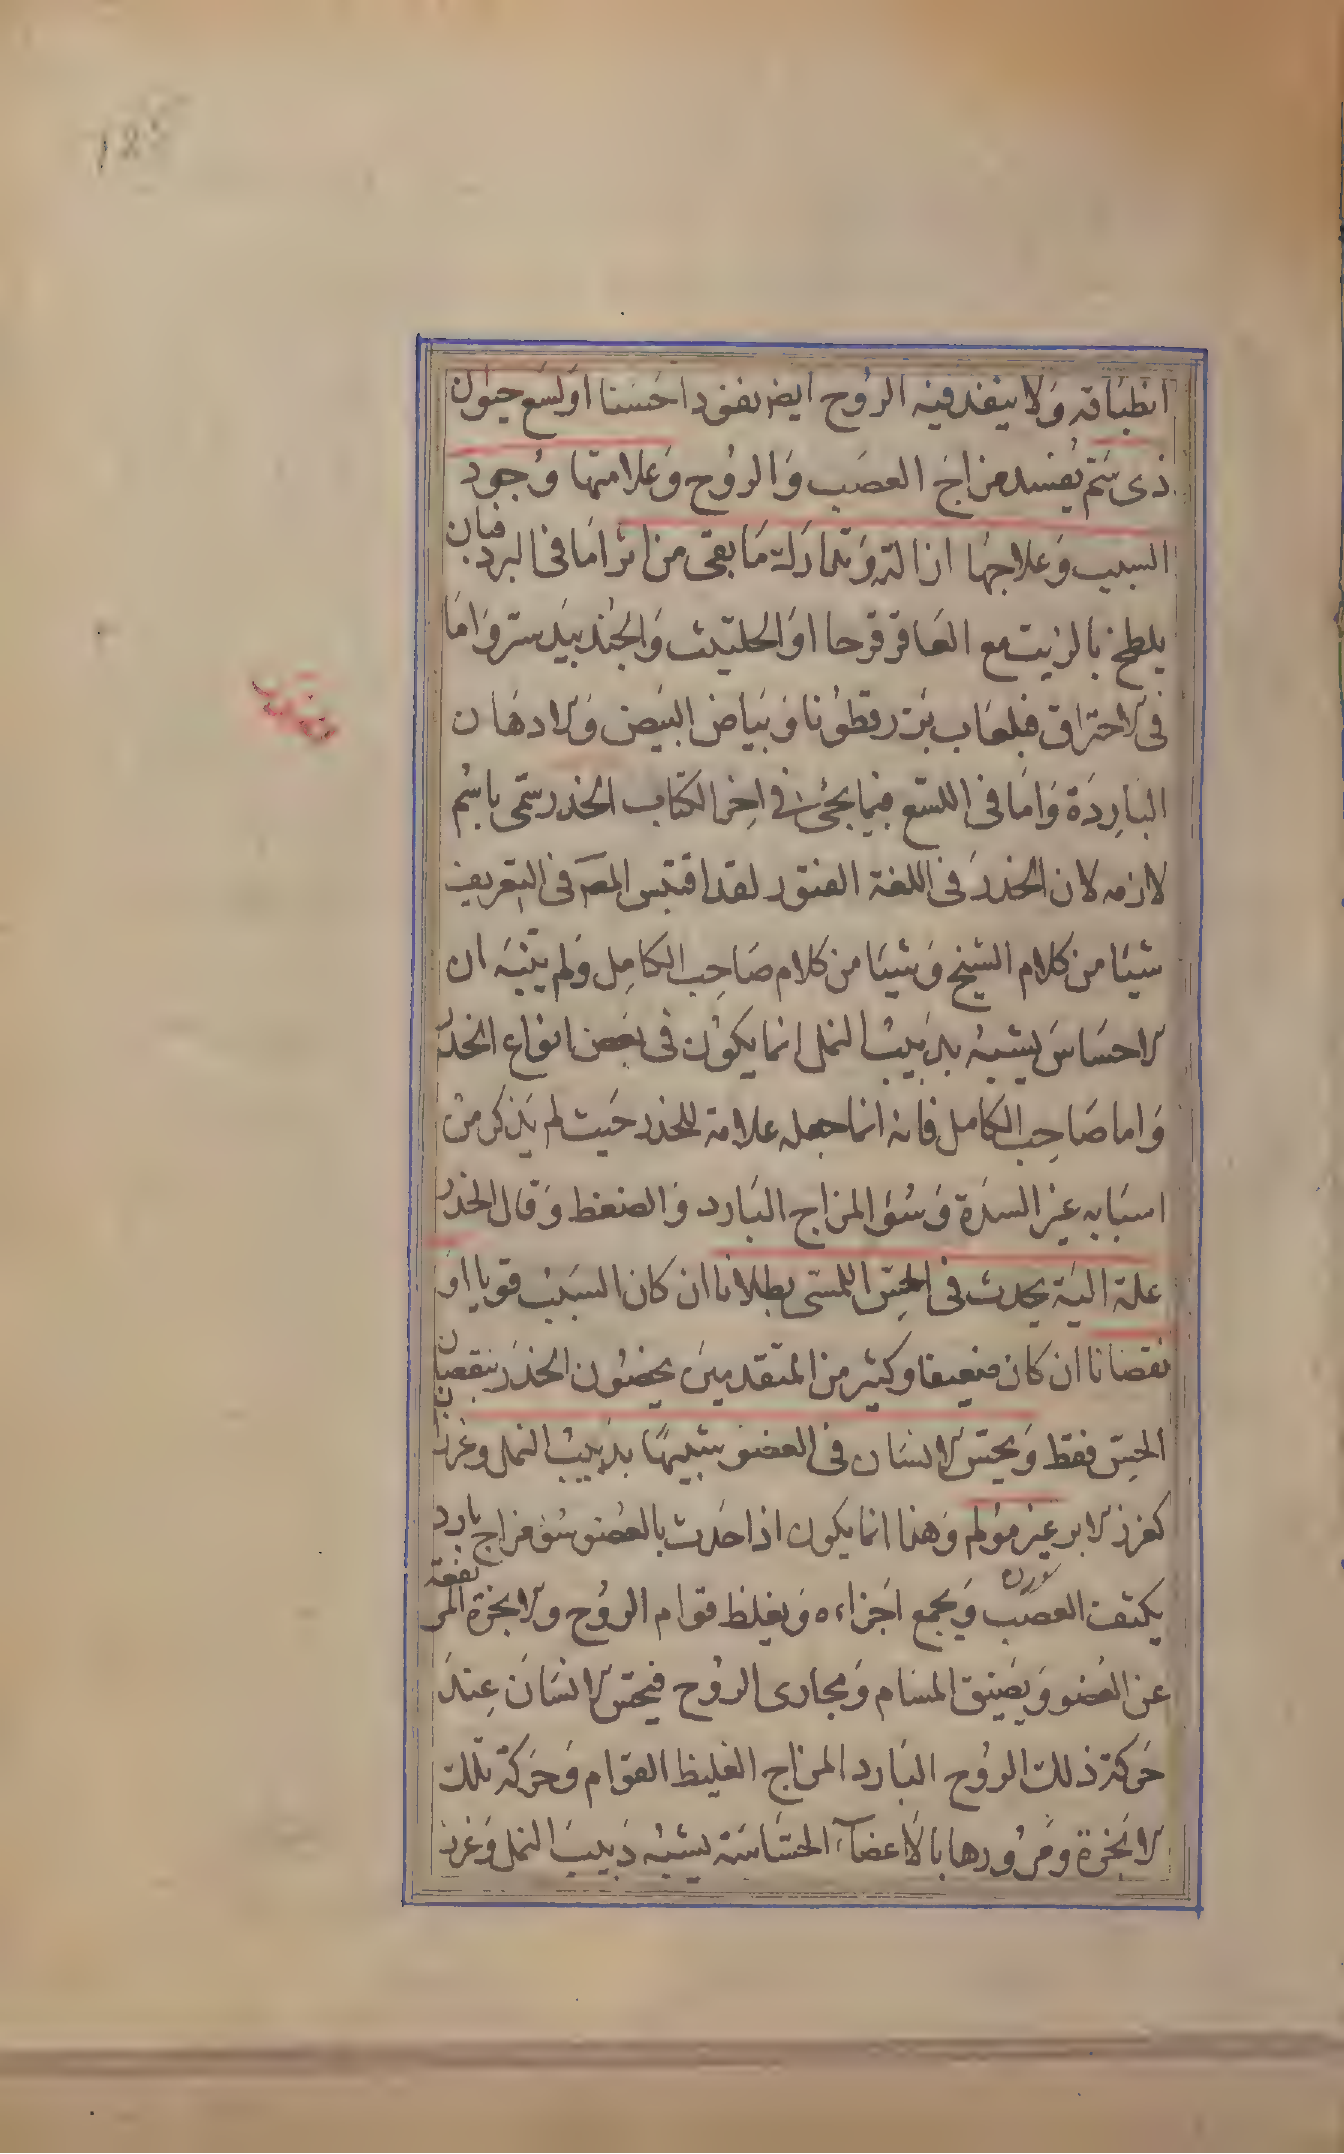 انطباقه وَلا ينفد فيه الروُح ايض نفوذا حَسَنا اوَلسَع حيوان
ذى سَمّ يُفسد مزاجَ العصَب وَالروُح وَعلامتها وُجود
السبب وَعلاجهَا ازالته وَتدارك مَا بقى من اثر امَا فى البرد فبان
يلطخ بالزيت مع العَاقرقرحا اوَالحلتيث وَالجُندبيدستر وَامَا
فى الاحتراق فبلعَاب بزرقطوُنا وَبيَاض البيَض وَالادهَان
البَاردَة وَامَا فى اللسَع فبما يجئ فى اخر الكتاب الخدر سَمّى باسْم
لازمه لان الخدرَ فى اللغة الفتور لقد اقتبس المصَ فى التعريف
شيئا من كلام الشيخ وَشيئَا من كلام صَاحب الكامِل وَلم يتنبَه ان
الاحسَاسَ يشبهُ بدَبيبُ النمل انما يكوُن فى بَعض انواع الخدر
وَاما صَاحب الكامل فانه انما جعله علامة للخدر حَيث لم يَذكر من
اسبَابه غيَر السدَة وَسُوء المزاج البَارد وَالضغط وَقال الخدر
علة اليَة يحدث فى الحِسّ اللمسَى بطلانا ان كان السَبَبُ قويا اوَ
نقصَانا ان كان ضعيفا وكثير من المتقدمينَ يخصُون الخدَر بنقصان
الحِسّ فقط وَيحسّ الانسَان فى العضو شبيهًا بدَبيبُ النمل وغرزا
كغرز الابر غيَر مؤلم وَهذا انما يكون اذا حَدَث بالعُضو سُوء مزاج بارد
يكثف العصَب وَيجمع اَجزاءه وَيغلظ قوَام الروُح وَالابخرَة المرتفعة
عن العُضو وَيضَيق المسَام وَمجارى الروُح فيحسّ الانسَان عِندَ
حَركة ذلك الروُح البَارد المزاج الغليظ القوَام وَحَركة تلك
الابخرَة ومَروُرها بالاَعضآء الحسَّاسَة يشبُه دَبيبَ النمل وَغرز